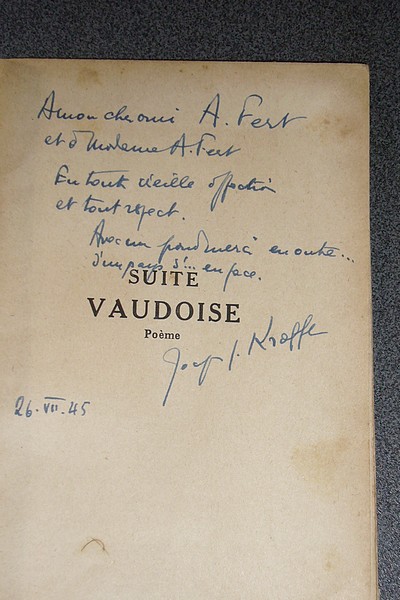 A mon cher ami A. Fert
et à Madame A. Fert
En toute vieille affection
et tout respect.
Avec un grand merci en outre...
d'un pays d'... en face.
SUITE
VAUDOISE
Poème
J. Kraffe
26-VII.45